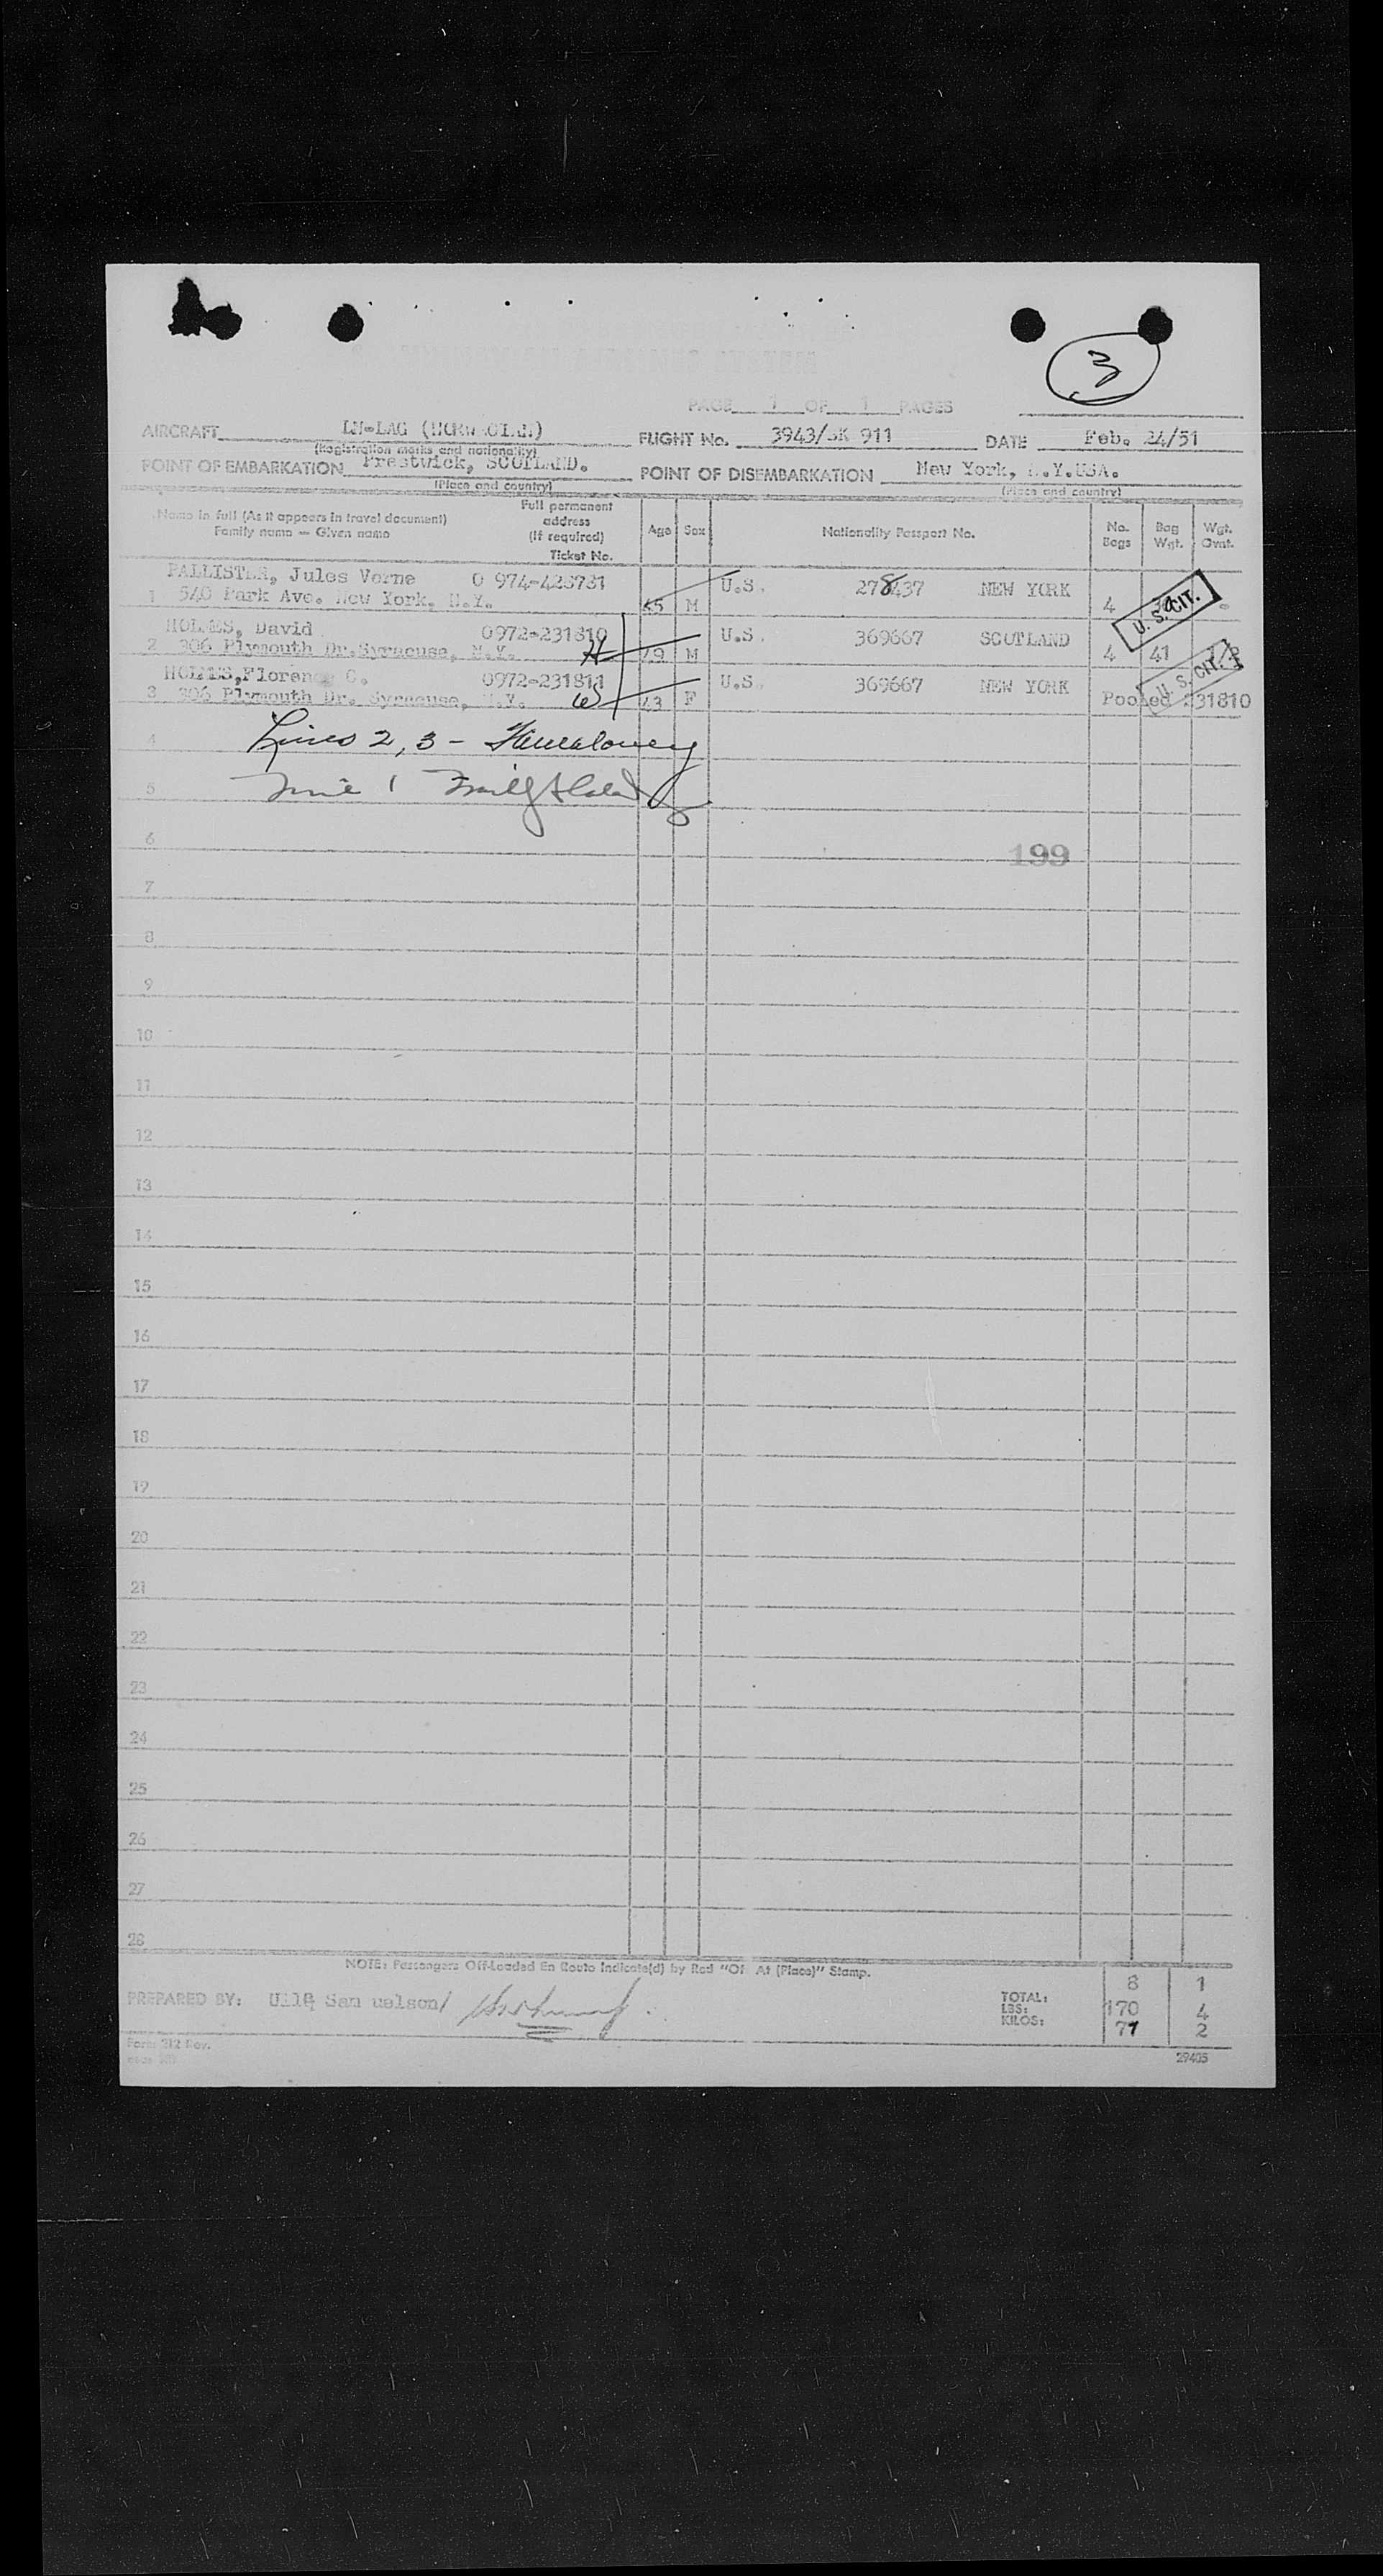 3
PAGE 1 OF 1 PAGES
AIRCRAFT LN-LAG (NORWEGIAN) FLIGHT No. 3943/SK 911 DATE Feb. 24/51
(Registration marks and nationality)
POINT OF EMBARKATION Prestwick, SCOTLAND. POINT OF DISEMBARKATION New York, N.Y.USA.
(Place and country) (Place and country)
Name in full (As it appears in travel document) Family name — Given name Full permanent address (If required) Ticket No. Age Sex Nationality Passport No. No. Bags Bag Wgt. Wgt. Ovnt.
PALLISTER, Jules Verne 0 974-423731 U.S. 278437 NEW YORK
1 540 Park Ave. New York, N.Y. 45 M 4
U. S. CIT.
HOLMES, David 0972-231810 U.S. 369667 SCOTLAND
2 306 Plymouth Dr.Syracuse, N.Y. H 49 M 4 41
U. S. CIT.
HOLMES,Florence C. 0972-231811 U.S. 369667 NEW YORK
3 306 Plymouth Dr. Syracuse, N.Y. W 43 F Pooled 231810
4 Lines 2, 3 -
5 Line 1
6
199
7
8
9
10
11
12
13
14
15
16
17
18
19
20
21
22
23
24
25
26
27
28
NOTE: Passengers Off-Loaded En Route Indicate(d) by Red "Of At (Place)" Stamp.
PREPARED BY: TOTAL: 8 1
LBS: 170 4
KILOS: 77 2
Form 312 Rev.
29405